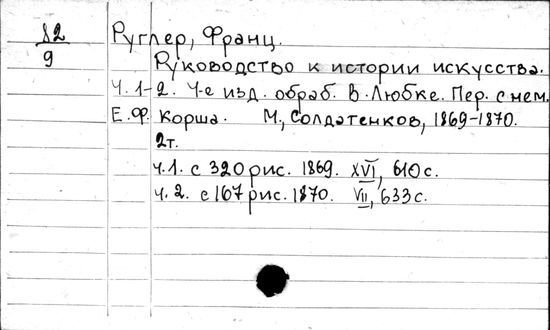 82
9
Руглер, Франц.
Руководство к истории искусства.
Ч. 1-2. 4-е изд. обраб. В. Любке. Пер. с нем.
Е.Ф. Корша. М., Солдатенков, 1869-1870.
2т.
ч.1. с 320 рис. 1869. XVI, 610 с.
ч. 2. с 167 рис. 1870. VII, 633 с.